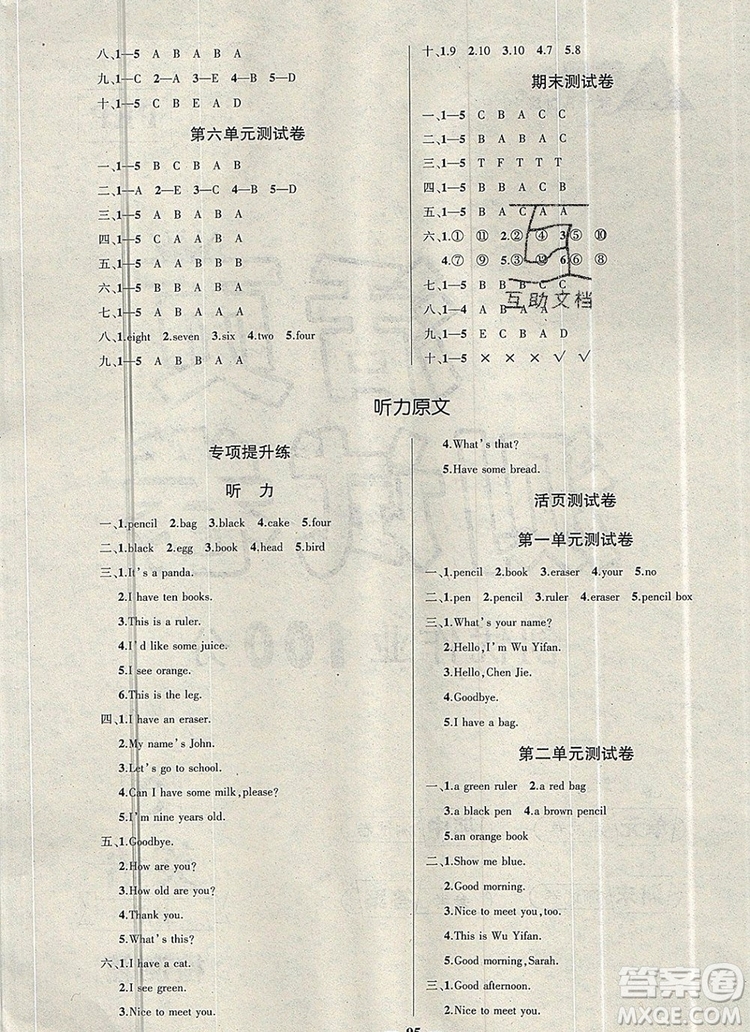 八、1—5 A B A B A
九、1—C 2—A 3—E 4—B 5—D
十、1—5 C B E A D
第六单元测试卷
一、1—5 B C B A B
二、1—A 2—E 3—C 4—B 5—D
三、1—5 A B A B A
四、1—5 C A B B A
五、1—5 A B A B A
六、1—5 A A B B A
七、1—5 A B A B A
八、1.eight 2.seven 3.six 4.two 5.four
九、1—5 A B B A A
十、1.9 2.10 3.10 4.7 5.8
期末测试卷
一、1—5 C B A C C
二、1—5 A B A C B
三、1—5 T F T T T
四、1—5 B A A C B
五、1—5 B A C A A
六、1.① ⑪ 2.② ④ 3.⑤ ⑩
4.⑦ ⑨ 5.③ ⑫ 6.⑥ ⑧
七、1—5
互助文档
八、1—4 A C B A
九、1—5 E C B A D
十、1—5 × × × √ √
听力原文
专项提升练
听 力
一、1.pencil 2.bag 3.black 4.cake 5.four
二、1.black 2.egg 3.book 4.head 5.bird
三、1.It's a panda.
2.I have ten books.
3.This is a ruler.
4.I'd like some juice.
5.I see orange.
6.This is the leg.
四、1.I have an eraser.
2.My name's John.
3.Let's go to school.
4.Can I have some milk,please?
5.I'm nine years old.
五、1.Goodbye.
2.How are you?
3.How old are you?
4.Thank you.
5.What's this?
六、1.I have a cat.
2.I see green.
3.Nice to meet you.
4.What's that?
5.Have some bread.
活页测试卷
第一单元测试卷
一、1.pencil 2.book 3.eraser 4.your 5.no
二、1.pen 2.pencil 3.ruler 4.eraser 5.pencil box
三、1.What's your name?
2.Hello,I'm Wu Yifan.
3.Hello,Chen Jie.
4.Goodbye.
5.I have a bag.
第二单元测试卷
一、1.a green ruler 2.a red bag
3.a black pen 4.a brown pencil
5.an orange book
二、1.Show me blue.
2.Good morning.
3.Nice to meet you,too.
4.This is Wu Yifan.
5.Good morning,Sarah.
三、1.Good afternoon.
2.Nice to meet you.
95
答案圈
MXQE.COM